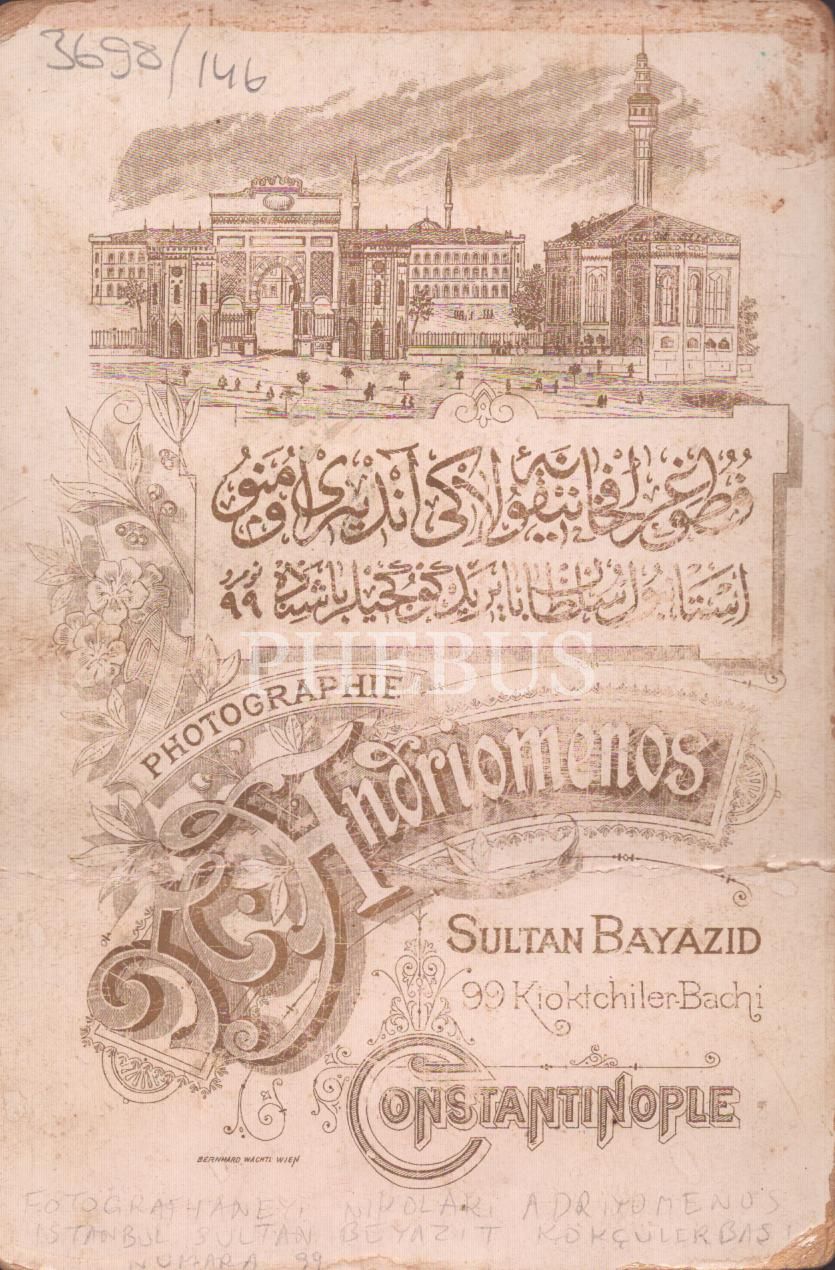 3698/146
فطوغرافخانهٔ نیقولاکی آندریومنو
استانبول سلطان بایزید کوکجیلر باشنده نومرو ۹۹
PHEBUS
PHOTOGRAPHIE
N. Andriomenos
SULTAN BAYAZID
99 Kioktchiler-Bachi
CONSTANTINOPLE
BERNHARD WACHTL WIEN
FOTOGRAFHANEYİ NİKOLAKİ ADRİYOMENOS
İSTANBUL SULTAN BEYAZIT KÖKÇÜLERBAŞI
NUMARA 99